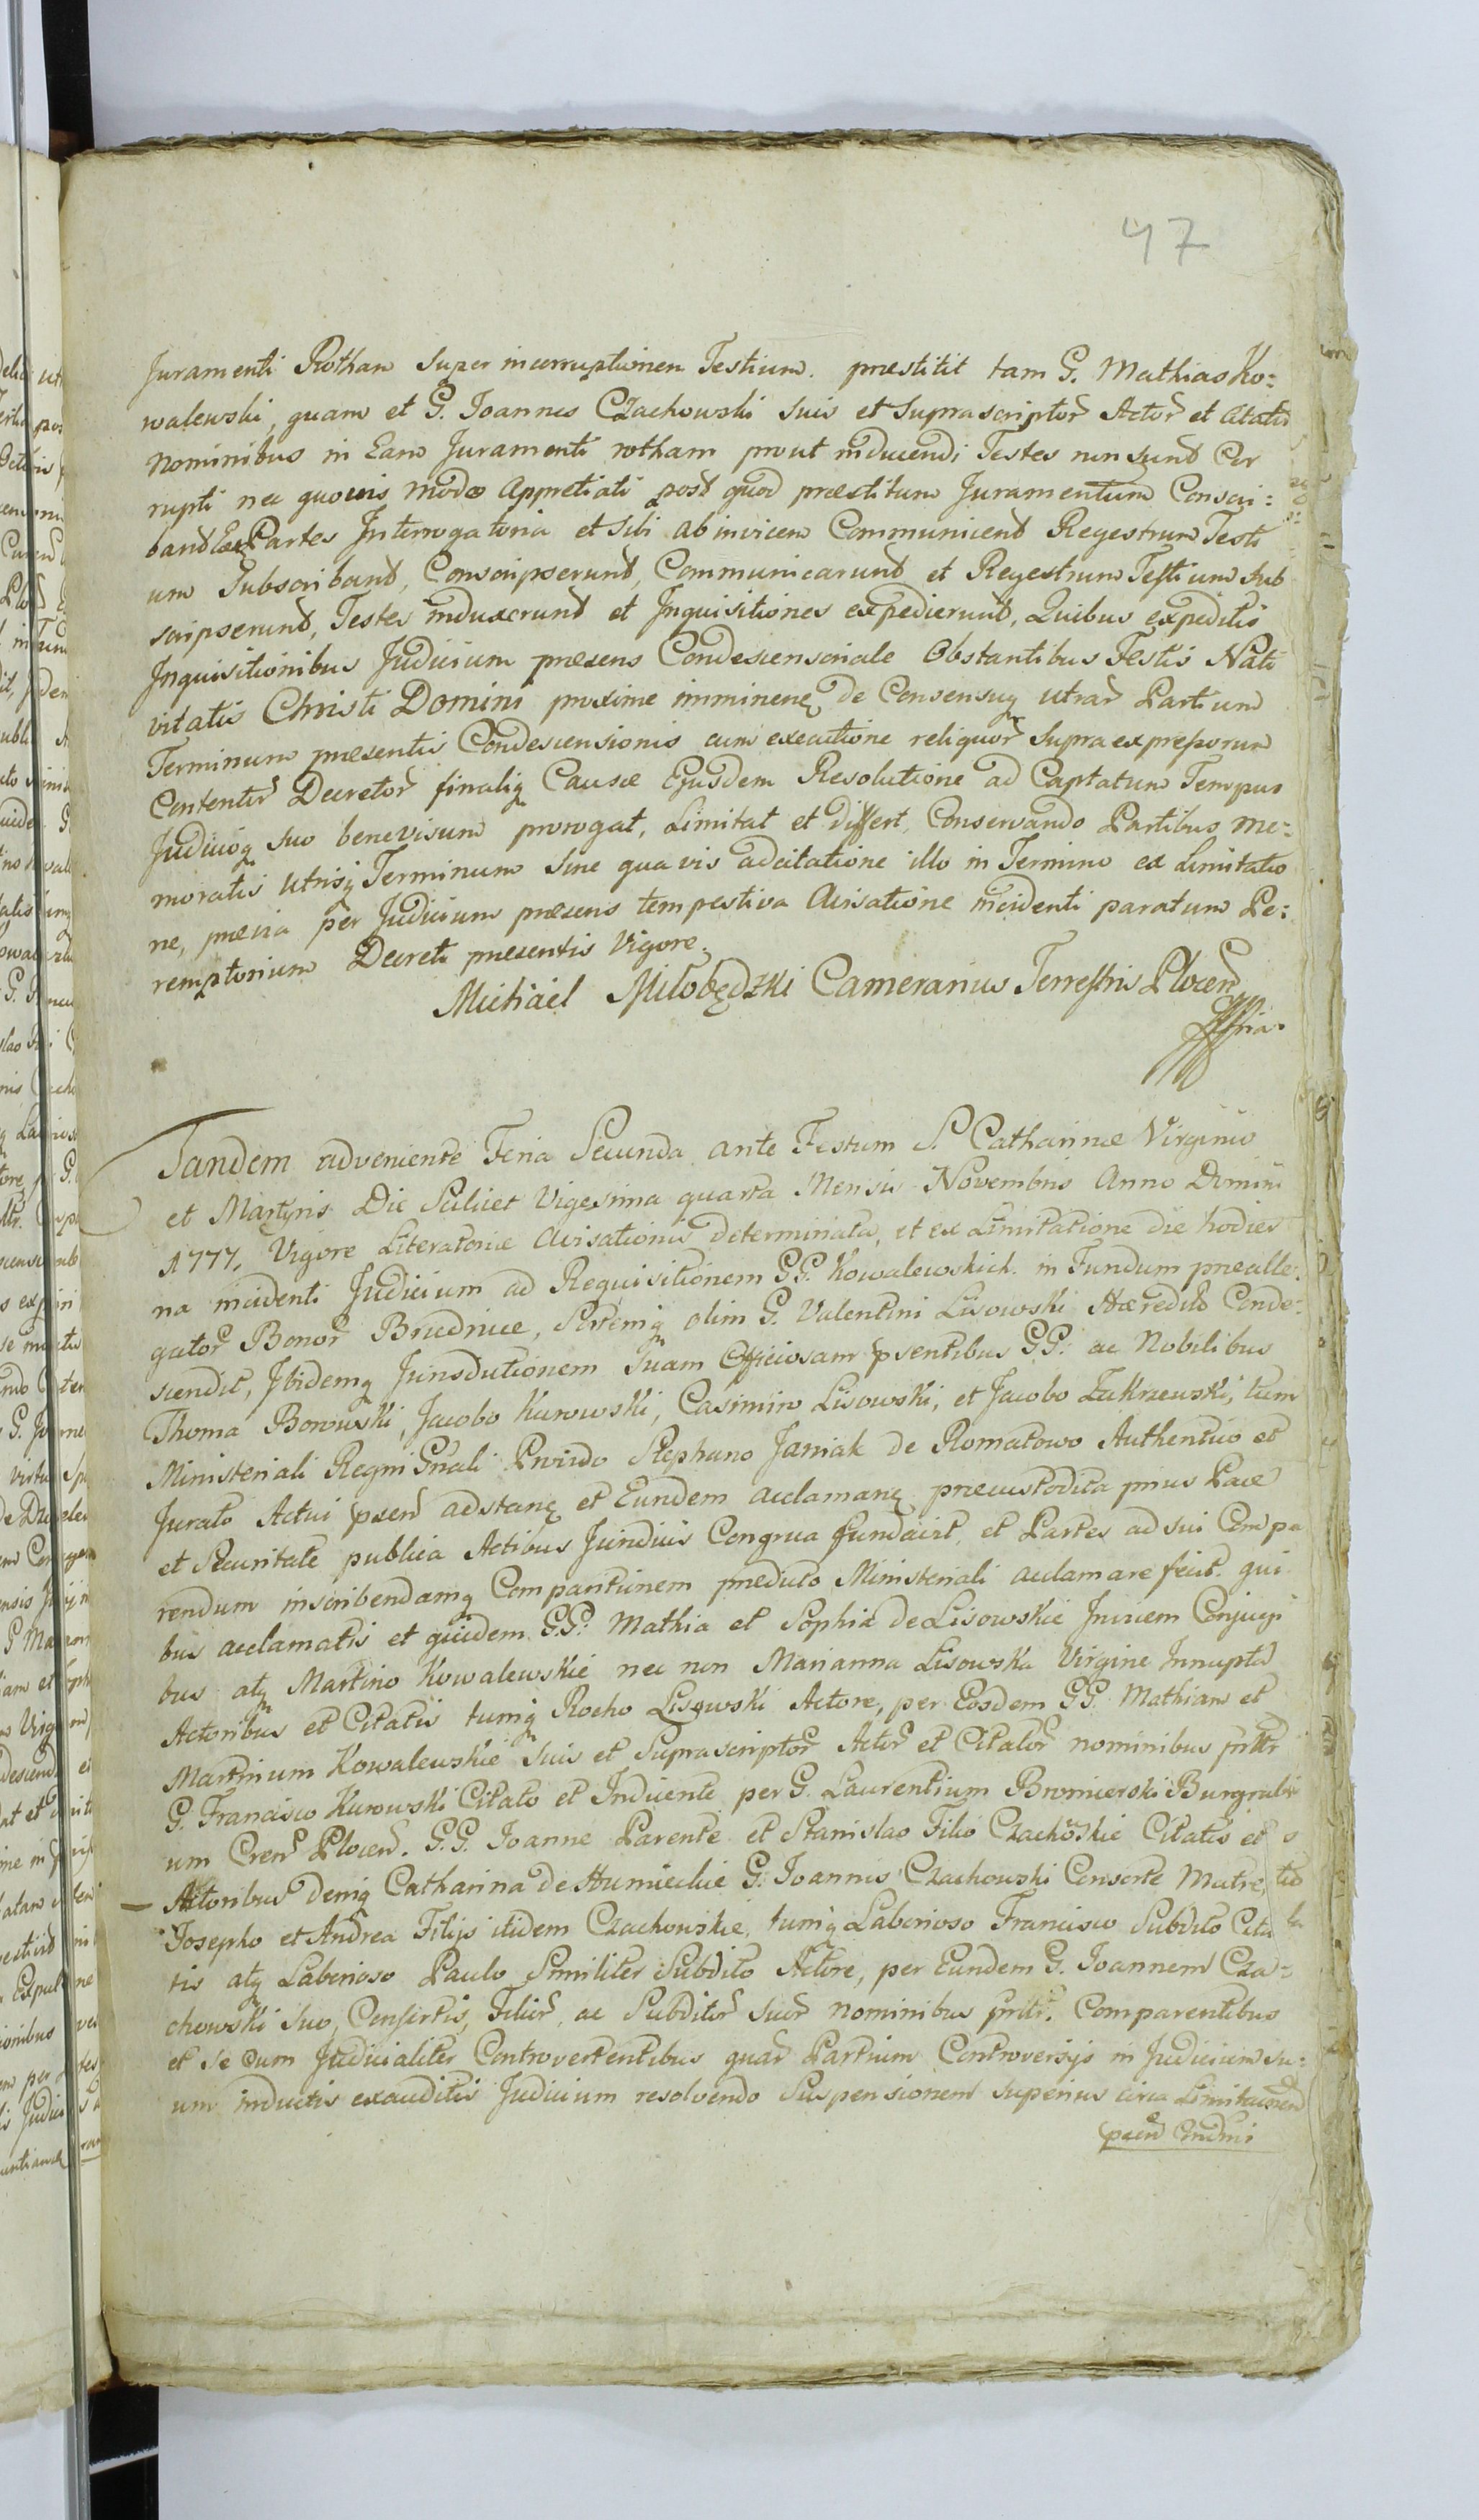 47
Juramenti Rotham super incorruptionem Testium. præstitit tam G. Mathias Ko=
walewski, quam et G. Joannes Czachowski suis et suprascriptor Actor et Citatis
Nominibus in Eam Juramenti rotham prout inducendi Testes non sund Cor
rupti nec quovis modo Appretiati post quod præstitum Juramentum Conscri=
band Partes Interrogatoria et sibi ab invicem Communicent Regestrum Testi
um Subscriband, Conscripserund, Communicarund et Regestrum Testium sub
scripserund, Testes induxerund et Inquisitiones expedierund, Quibus expeditis
Inquisitionibus Judicium præsens Condescensoriale Obstantibus Festis Nati
vitatis Christi Domini proxime imminen de Consensuq utrar Partium
Terminum præsentis Condescensionis cum executione reliquor supraexpressorum
Contentor Decretor finaliq Causæ Ejusdem Resolutione ad Captatum Tempus
Judicioq suo benevisum prorogat, Limitat et differt, Conservando Partibus me=
moratis utrisq Terminum sine quavis adcitatione illo in Termino ex Limitatio
ne, prævia per Judicium præsens tempestiva Avisatione incidenti paratum Pe=
remptorium Decreti præsentis Vigore.
Michael Miłobędzki Camerarius Terrestris Plocen
Tandem adveniente Feria Secunda ante Festum S. Catharinæ Virginis
et Martyris Die Scilicet Vigesima quarta Mensis Novembris Anno Domini
1777, Vigore Literatoriæ Avisationis determinata, et ex Limitatione die hodier
na incidenti Judicium ad Requisitionem GG. Kowalewskich in Fundum prealle=
gator Bonor Brudnice, Sortemq olim G. Valentini Lisowski Hæredis Conde=
scendit, Ibidemq Jurisdictionem Suam Officiosam psentibus GG. ac Nobilibus
Thoma Borowski, Jacobo Kurowski, Casimiro Lisowski, et Jacobo Zakrzewski, tum
Ministeriali Regni Gnali Prvido Stephano Janiak de Romatowo Authentico et
Jurato Actui psen adstan et Eundem acclaman præcustodita prius Pace
et Securitate publica Actibus Juridicis Congrua fundavit, et Partes ad sui Compa
rendum inscribendamq Comparitionem prædicto Ministeriali acclamare fecit. qui
bus acclamatis et quidem G.G. Mathia et Sophia de Lisowskie Invicem Conjugi
bus atq Martino Kowalewskie nec non Marianna Lisowska Virgine Innupta
Actoribus et Citatis tumq Rocho Lisowski Actore, per Eosdem GG. Mathiam et
Martinum Kowalewskie suis et Suprascriptor Actor et Citator nominibus psltr
G. Francisco Kurowski Citato et Inducente per G. Laurentium Bromierski Burgrabi
um Cren Plocen. G.G. Joanne Parente et Stanislao Filio Czachoskie Citatis et
Actoribus deniq Catharina de Humieckie G. Joannis Czachowski Consorte Matre,
Josepho et Andrea Filijs itidem Czachowskie, tumq Laborioso Francisco Subdito Cita
tis atq Laborioso Paulo Similiter Subdito Actore, per Eundem G. Joannem Cza=
chowski suo, Consortis, Filior, ac Subditor suor nominibus psltr. Comparentibus
et se cum Judicialiter Controvertentibus quar Partium Controversijs in Judicium su=
um inductis exauditis Judicium resolvendo Suspensionem superius circa Limitationem
psen Condni